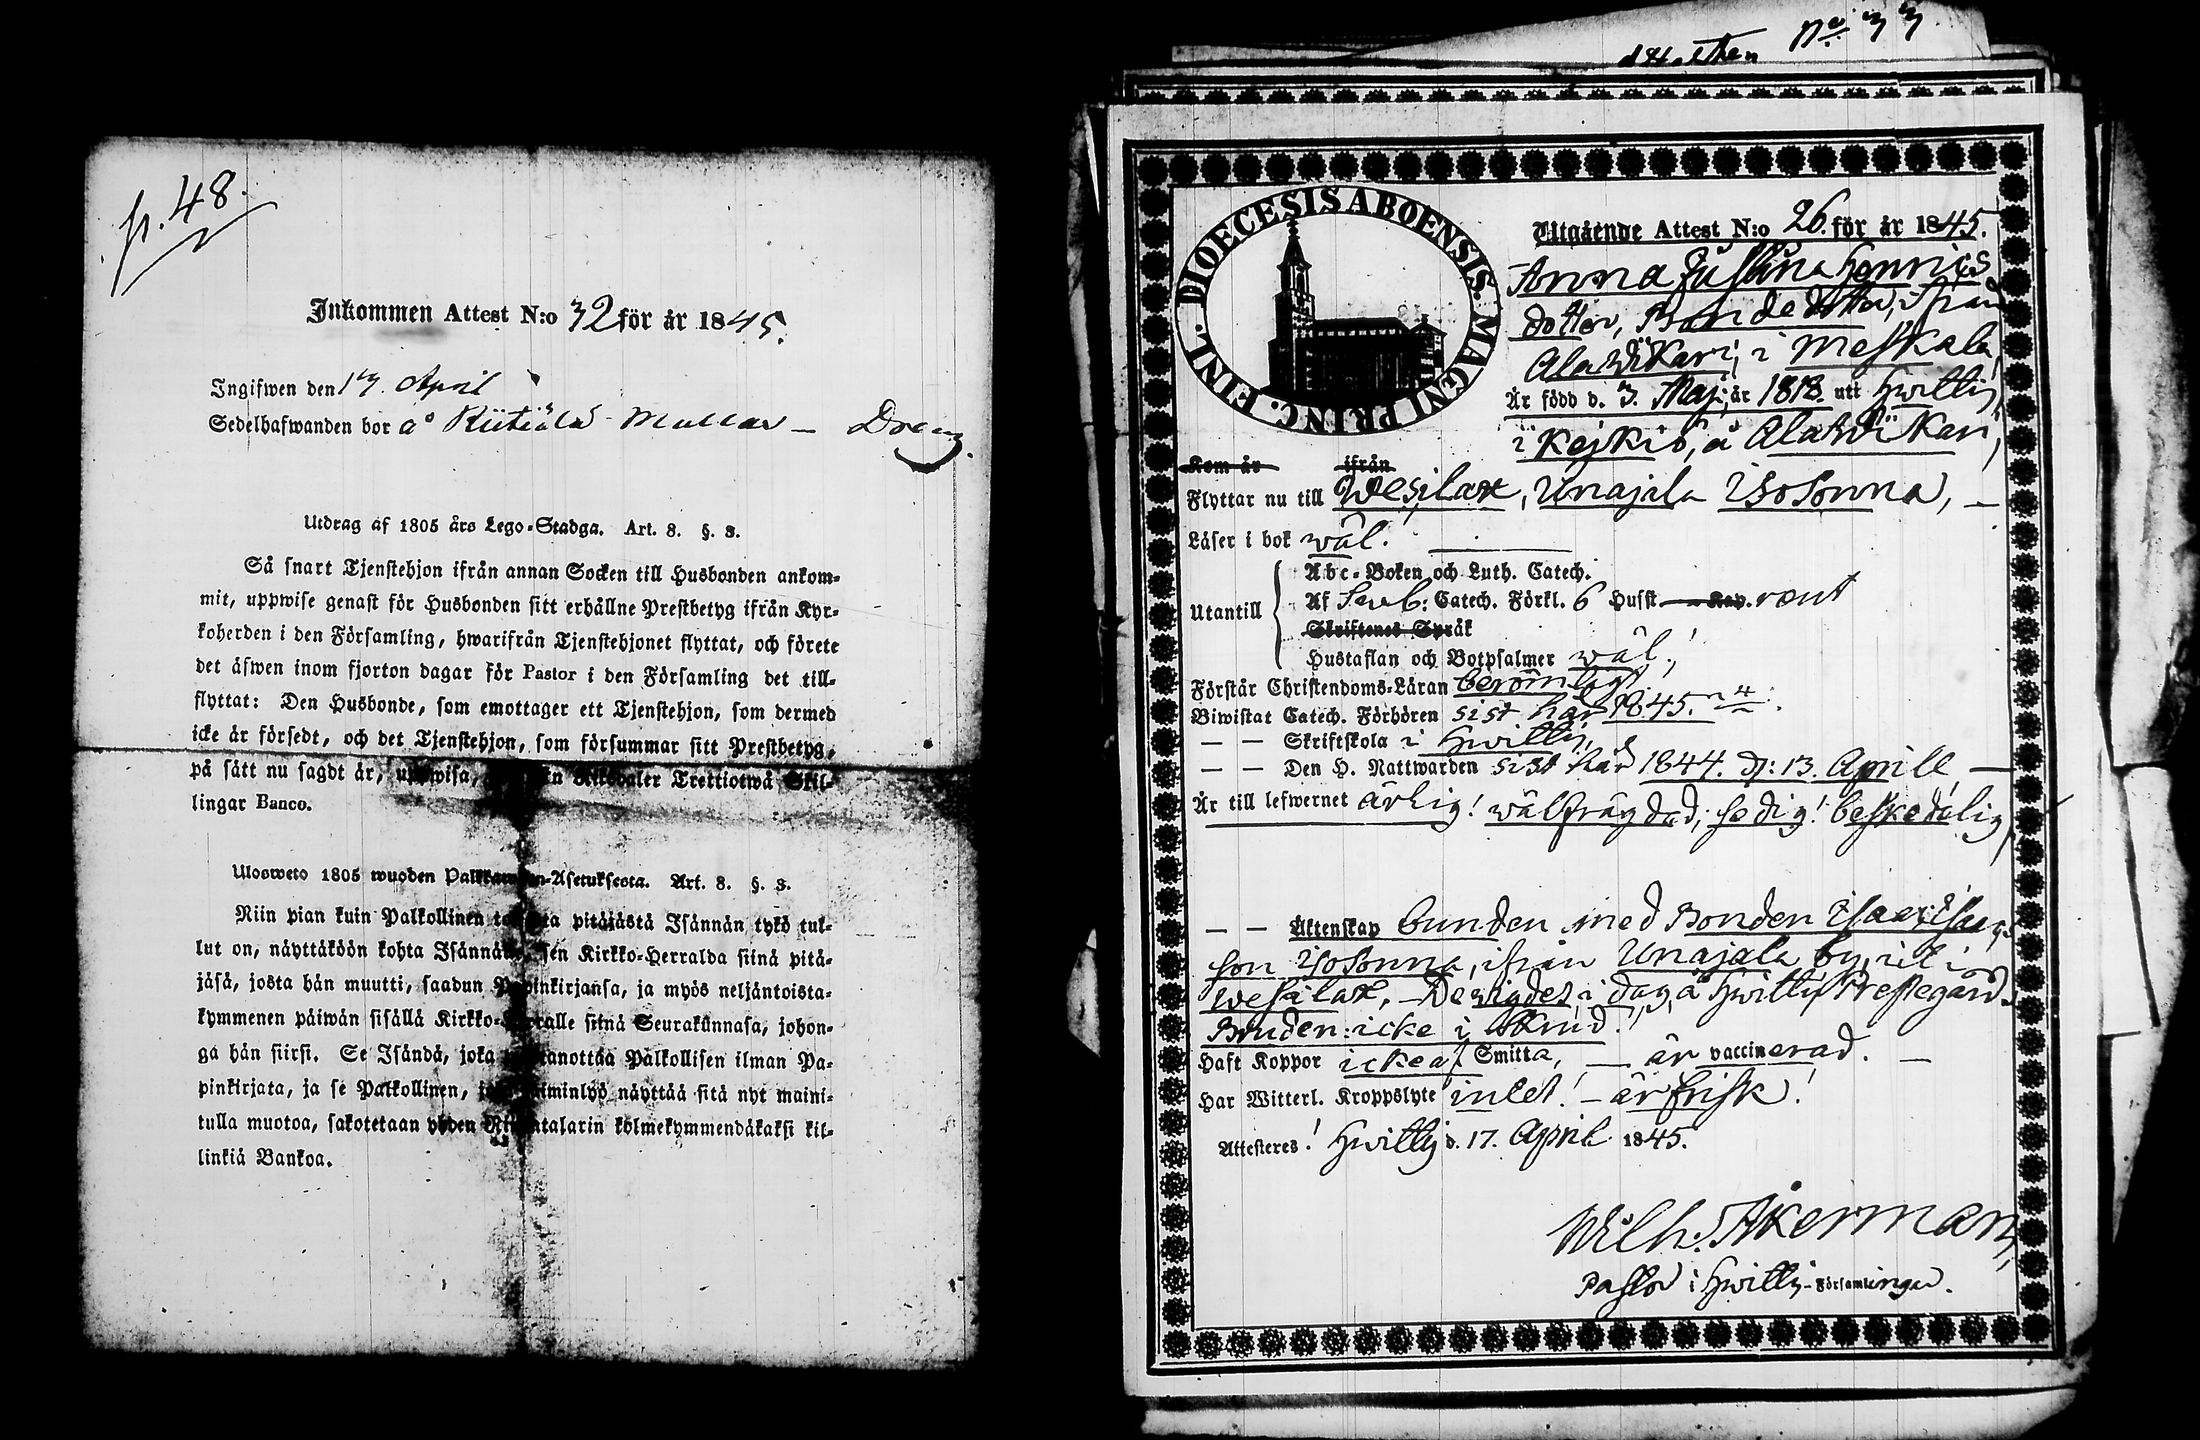 p. 48.
Inkommen Attest N:o 32 för år 1845.
Ingifwen den 17. April
Sedelhafwanden bor å Riitiälä Mullar — Dreng.
Utdrag af 1805 års Lego-Stadga. Art. 8. §. 3.
Så snart Tjenstehjon ifrån annan Socken till Husbonden ankom-
mit, uppwise genast för Husbonden sitt erhållne Prestbetyg ifrån Kyr-
koherden i den Församling, hwarifrån Tjenstehjonet flyttat, och förete
det äfwen inom fjorton dagar för Pastor i den Församling det till-
flyttat: Den Husbonde, som emottager ett Tjenstehjon, som dermed
icke är försedt, och det Tjenstehjon, som försummar sitt Prestbetyg,
på sätt nu sagdt är, uppwisa, Riksdaler Trettiotwå Skil-
lingar Banco.
Ulosweto 1805 wuoden Palkkawäen-Asetuksesta. Art. 8. §. 3.
Niin pian kuin Palkollinen toisesta pitäjästä Isännän tykö tul-
lut on, näyttäköön kohta Isännällensä sen Kirkko-Herralda siinä pitä-
jäsä, josta hän muutti, saadun Papinkirjansa, ja myös neljäntoista-
kymmenen päiwän sisällä Kirkko-Herralle siinä Seurakunnasa, johon-
ga hän siirsi. Se Isändä, joka wastanottaa Palkollisen ilman Pa-
pinkirjata, ja se Palkollinen, joka laiminlyö näyttää sitä nyt maini-
tulla muotoa, sakotetaan yhden Riikintalarin kolmekymmendäkaksi kil-
linkiä Bankoa.
No 33
DIOECESIS ABOENSIS. MAGNI PRINC. FINL.
Utgående Attest N:o 26. för år 1845.
Anna Justina Henrics
dotter, Bondedotter, ifrån
Alawikari, i Meskala,
Är född d. 3. Maj, år 1818. uti Hwittis,
i Kejkiö, å Alawikari,
Kom år ifrån
Flyttar nu till Wesilax, Unajala Isosonna, —
Läser i bok wäl!
Utantill
Abc-Boken och Luth. Catech.
Af Sweb: Catech. Förkl. 6 Hufst Kap. rent
Skriftenes Språk
Hustaflan och Botpsalmer wäl!
Förstår Christendoms-Läran berömligt
Biwistat Catech. Förhören sist här 1845.
— — Skriftskola i Hwittis,
— — Den H. Nattwarden sist här 1844. d: 13. Aprill —
Är till lefwernet ärlig! wälfrägdad, sedig! beskedelig,
— — Äktenskap bunden med Bonden Isac Isacs
son Isosonna, ifrån Unajala by, i
Wesilax, — De wigdes i dag å Hwittis Prestegård.
Bruden: icke i Skrud!
Haft Koppor icke af Smitta, — är vaccinerad. —
Har Witterl. Kroppslyte intet! — är frisk!
Attesteres! Hwittis d. 17. April 1845.
Wilh: Åkerman,
Pastor i Hwittis-Församlingar.